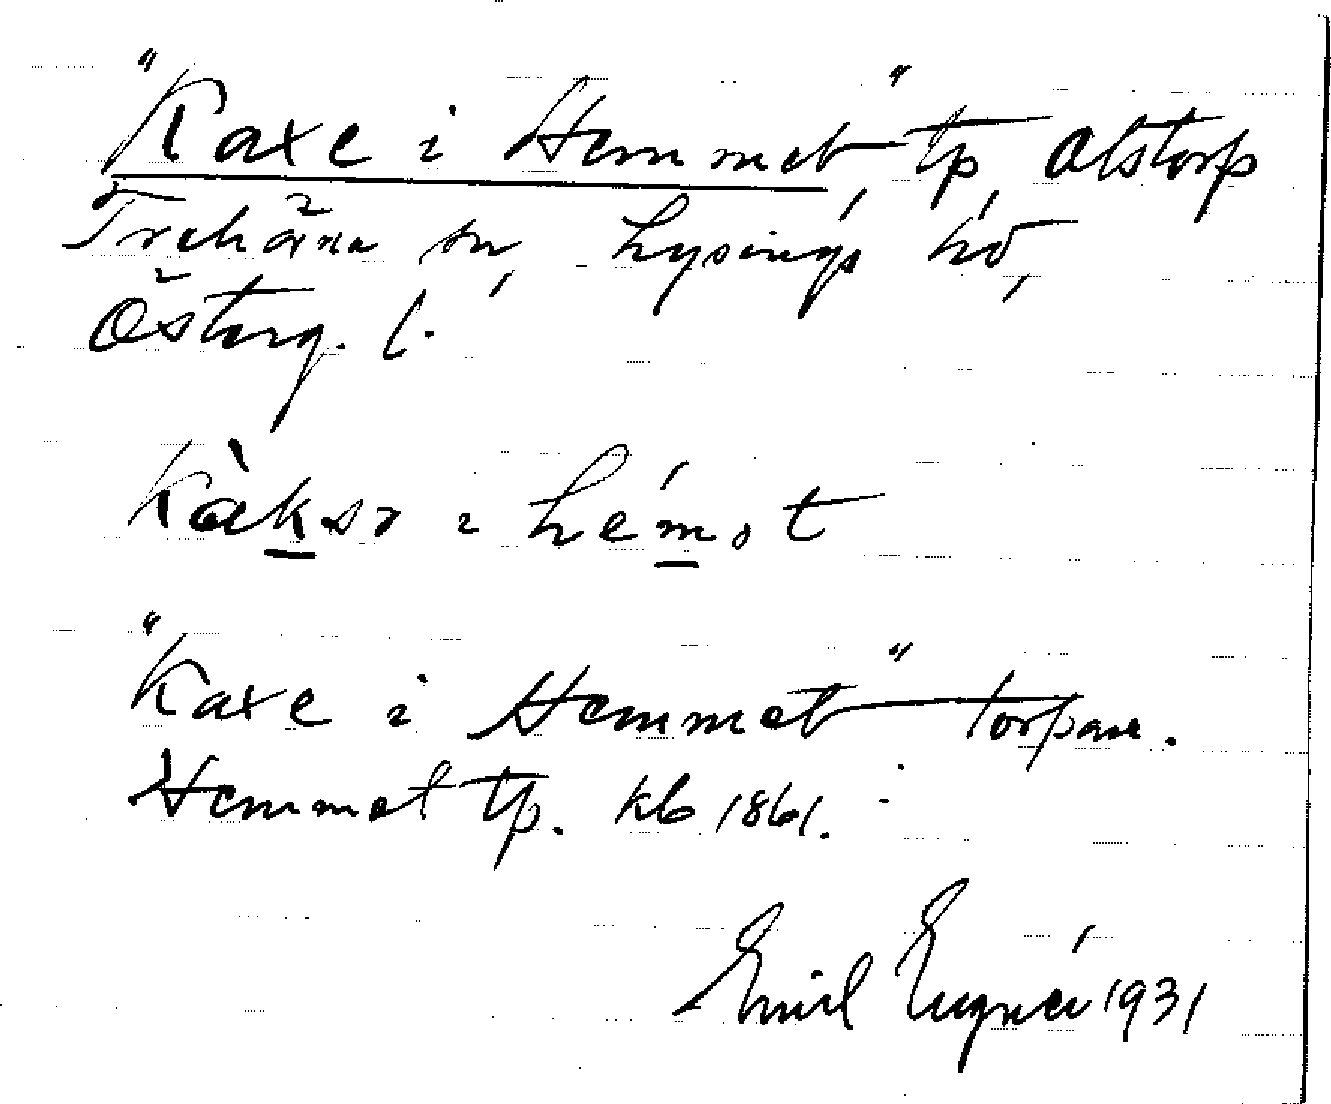 "Kaxe i Hemmet" tp, Alstorp,
Trehörna sn, Lysings hd,
Österg. l.
Kàksə i hémət
"Kaxe i Hemmet" torpare.
Hemmet tp. kb 1861.
Emil 1931